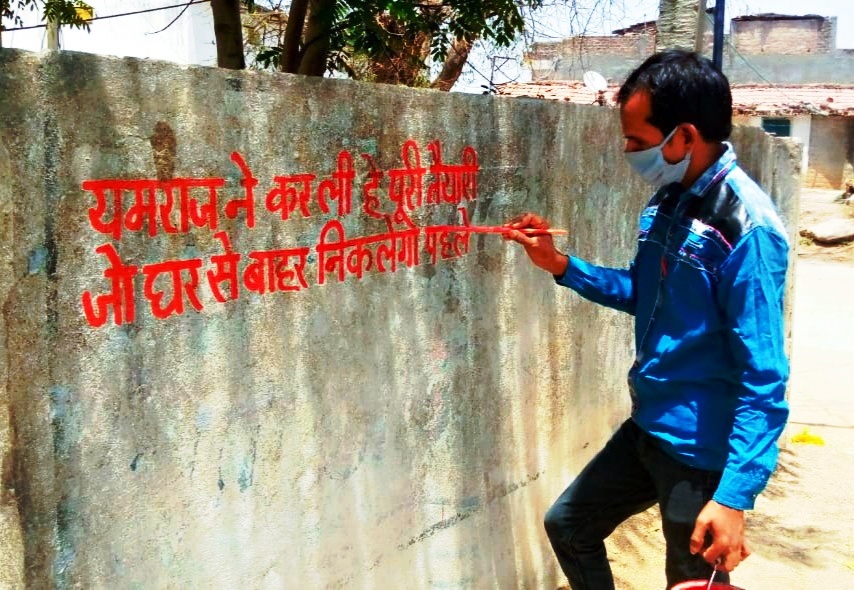 यमराज ने कर ली हे पूरी तैयारी
जो घर से बाहर निकलेगा पहले